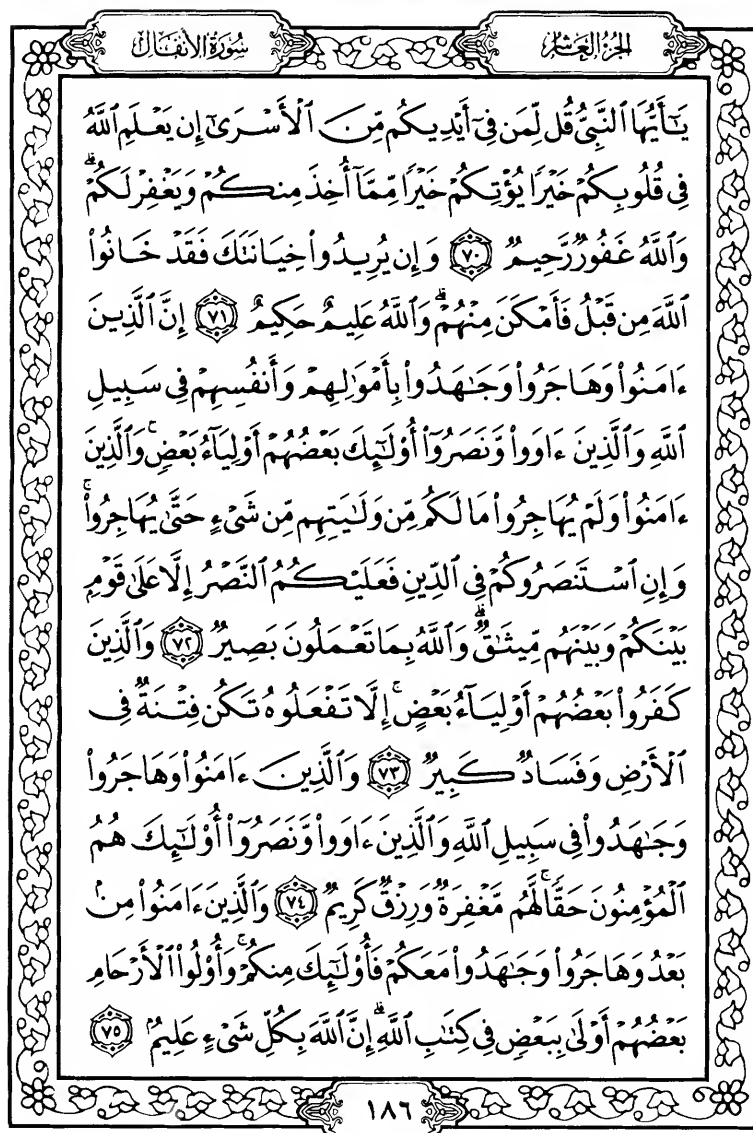 سُورَةُ الأَنفَالِ
الجُزءُ العَاشِرُ
يَٰٓأَيُّهَا ٱلنَّبِىُّ قُل لِّمَن فِىٓ أَيْدِيكُم مِّنَ ٱلْأَسْرَىٰٓ إِن يَعْلَمِ ٱللَّهُ
فِى قُلُوبِكُمْ خَيْرًا يُؤْتِكُمْ خَيْرًا مِّمَّآ أُخِذَ مِنكُمْ وَيَغْفِرْ لَكُمْ ۗ
وَٱللَّهُ غَفُورٌ رَّحِيمٌ ٧٠ وَإِن يُرِيدُوا۟ خِيَانَتَكَ فَقَدْ خَانُوا۟
ٱللَّهَ مِن قَبْلُ فَأَمْكَنَ مِنْهُمْ ۗ وَٱللَّهُ عَلِيمٌ حَكِيمٌ ٧١ إِنَّ ٱلَّذِينَ
ءَامَنُوا۟ وَهَاجَرُوا۟ وَجَٰهَدُوا۟ بِأَمْوَٰلِهِمْ وَأَنفُسِهِمْ فِى سَبِيلِ
ٱللَّهِ وَٱلَّذِينَ ءَاوَوا۟ وَّنَصَرُوٓا۟ أُو۟لَٰٓئِكَ بَعْضُهُمْ أَوْلِيَآءُ بَعْضٍ ۚ وَٱلَّذِينَ
ءَامَنُوا۟ وَلَمْ يُهَاجِرُوا۟ مَا لَكُم مِّن وَلَٰيَتِهِم مِّن شَىْءٍ حَتَّىٰ يُهَاجِرُوا۟ ۚ
وَإِنِ ٱسْتَنصَرُوكُمْ فِى ٱلدِّينِ فَعَلَيْكُمُ ٱلنَّصْرُ إِلَّا عَلَىٰ قَوْمٍۭ
بَيْنَكُمْ وَبَيْنَهُم مِّيثَٰقٌ ۗ وَٱللَّهُ بِمَا تَعْمَلُونَ بَصِيرٌ ٧٢ وَٱلَّذِينَ
كَفَرُوا۟ بَعْضُهُمْ أَوْلِيَآءُ بَعْضٍ ۚ إِلَّا تَفْعَلُوهُ تَكُن فِتْنَةٌ فِى
ٱلْأَرْضِ وَفَسَادٌ كَبِيرٌ ٧٣ وَٱلَّذِينَ ءَامَنُوا۟ وَهَاجَرُوا۟
وَجَٰهَدُوا۟ فِى سَبِيلِ ٱللَّهِ وَٱلَّذِينَ ءَاوَوا۟ وَّنَصَرُوٓا۟ أُو۟لَٰٓئِكَ هُمُ
ٱلْمُؤْمِنُونَ حَقًّا ۚ لَّهُم مَّغْفِرَةٌ وَرِزْقٌ كَرِيمٌ ٧٤ وَٱلَّذِينَ ءَامَنُوا۟ مِنۢ
بَعْدُ وَهَاجَرُوا۟ وَجَٰهَدُوا۟ مَعَكُمْ فَأُو۟لَٰٓئِكَ مِنكُمْ ۚ وَأُو۟لُوا۟ ٱلْأَرْحَامِ
بَعْضُهُمْ أَوْلَىٰ بِبَعْضٍ فِى كِتَٰبِ ٱللَّهِ ۗ إِنَّ ٱللَّهَ بِكُلِّ شَىْءٍ عَلِيمٌۢ ٧٥
١٨٦